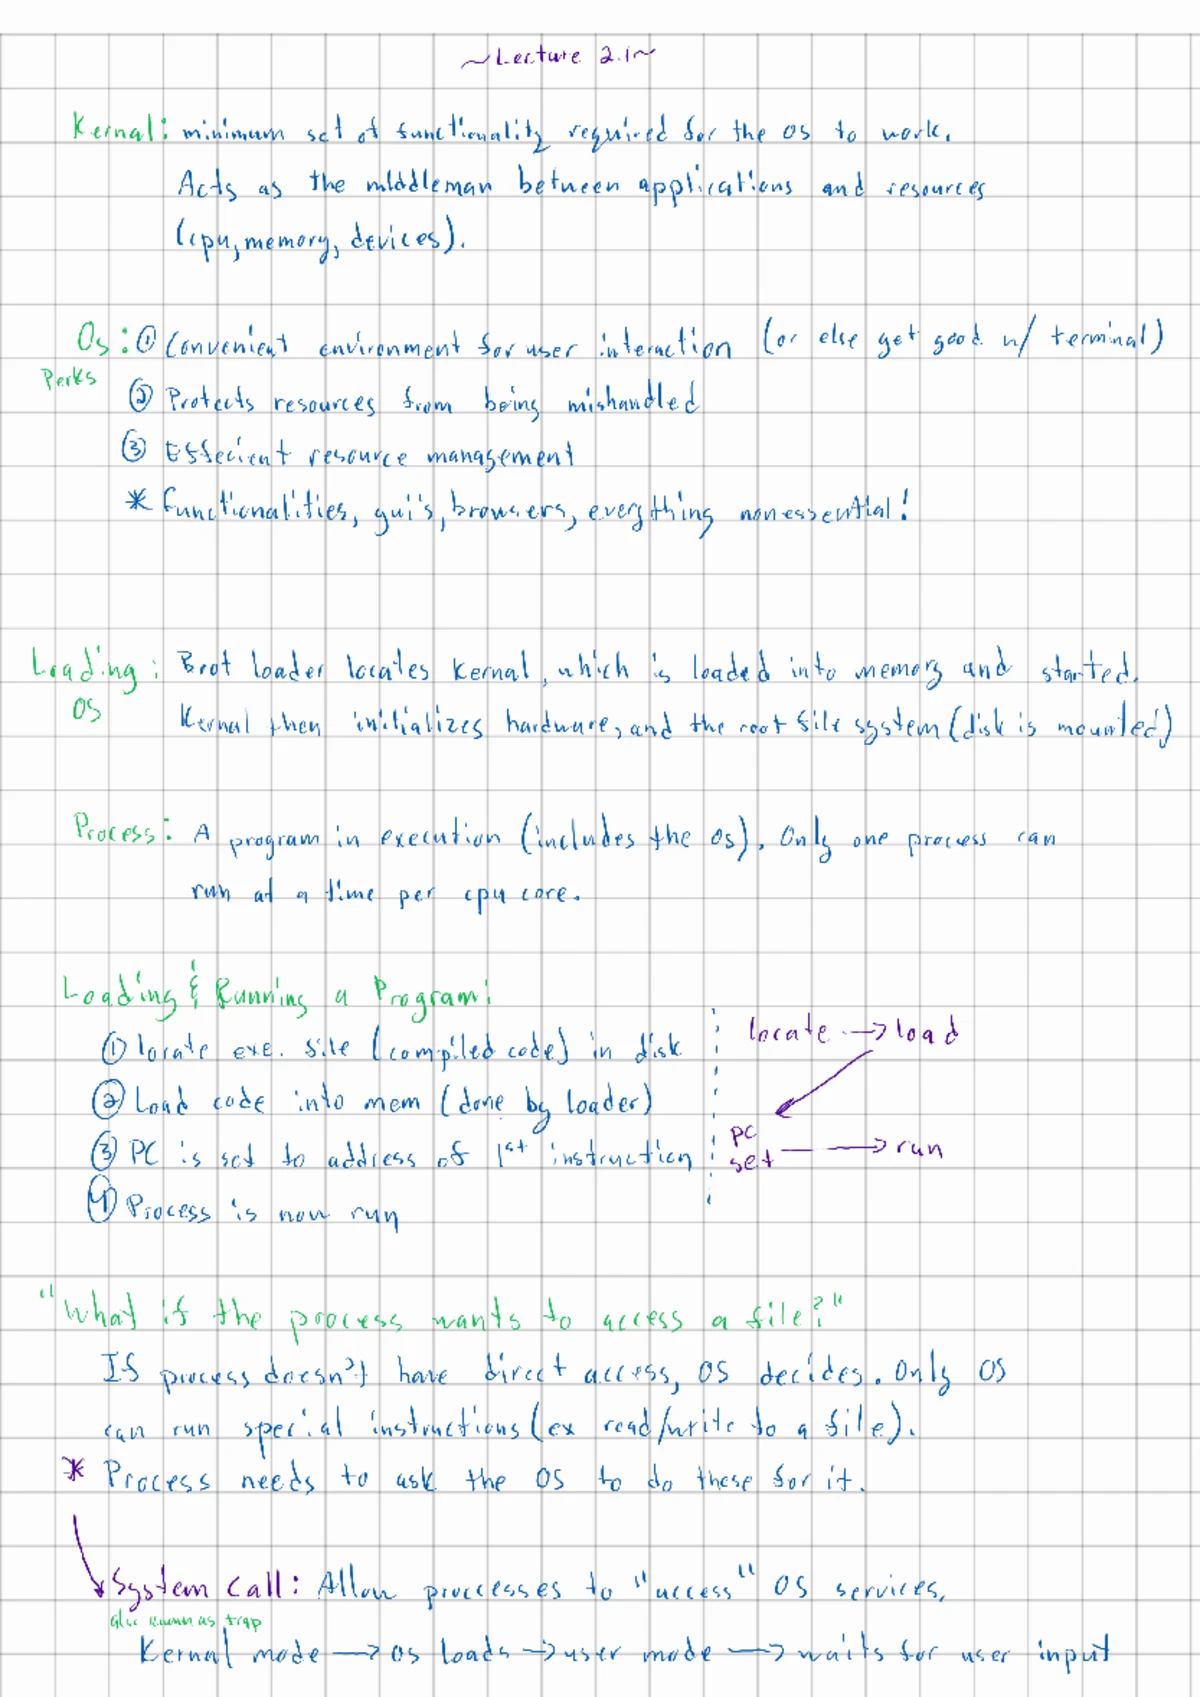 ~Lecture 2.1~
Kernal: minimum set of functionality required for the OS to work.
Acts as the middleman between applications and resources
(cpu, memory, devices).
Os: ① Convenient environment for user interaction (or else get good w/ terminal)
Perks
② Protects resources from being mishandled
③ Effecient resource management
* functionalities, gui's, browsers, everything nonessential!
Loading: Boot loader locates Kernal, which is loaded into memory and started.
OS Kernal then initializes hardware, and the root file system (disk is mounted)
Process: A program in execution (includes the os). Only one process can
run at a time per cpu core.
Loading & Running a Program:
① locate exe. file (compiled code) in disk
② Load code into mem (done by loader)
③ PC is set to address of 1st instruction
④ Process is now run
locate → load
PC
set → run
"What if the process wants to access a file?"
If process doesn't have direct access, OS decides. Only OS
can run special instructions (ex read/write to a file).
* Process needs to ask the OS to do these for it.
System Call: Allow proccesses to "access" OS services.
also known as trap
Kernal mode → os loads → user mode → waits for user input